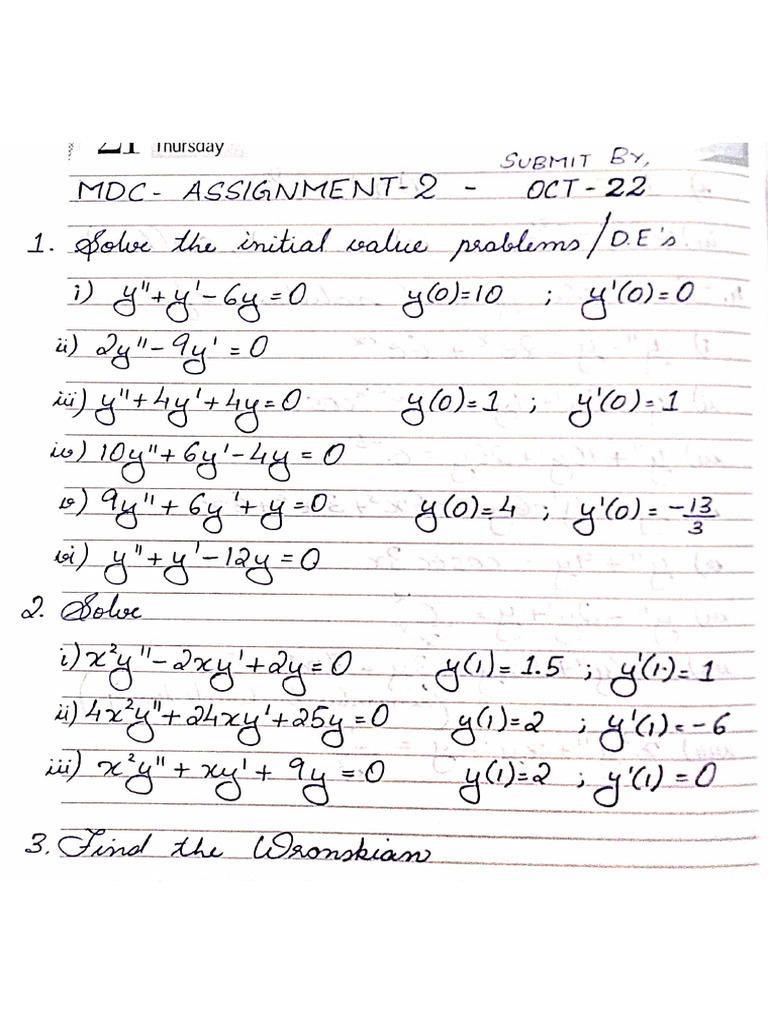 21 Thursday
SUBMIT BY,
MDC - ASSIGNMENT-2 - OCT-22
1. Solve the initial value problems/D.E's
i) y"+y'-6y=0 y(0)=10 ; y'(0)=0
ii) 2y"-9y'=0
iii) y"+4y'+4y=0 y(0)=1 ; y'(0)=1
iv) 10y"+6y'-4y=0
v) 9y"+6y'+y=0 y(0)=4 ; y'(0)=-13/3
vi) y"+y'-12y=0
2. Solve
i) x²y"-2xy'+2y=0 y(1)=1.5 ; y'(1)=1
ii) 4x²y"+24xy'+25y=0 y(1)=2 ; y'(1)=-6
iii) x²y"+xy'+9y=0 y(1)=2 ; y'(1)=0
3. Find the Wronskian